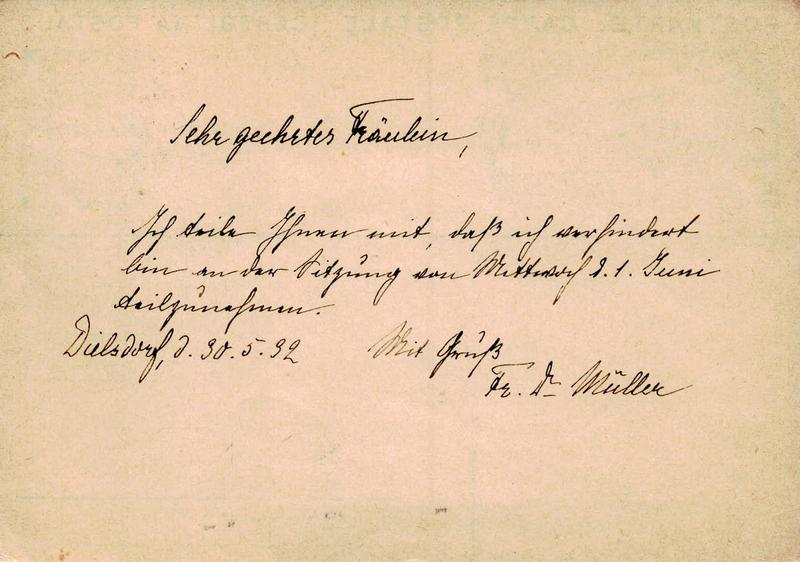 Sehr geehrtes Fräulein,
Ich teile Ihnen mit, daß ich verhindert
bin an der Sitzung von Mittwoch d. 1. Juni
teilzunehmen.
Dielsdorf, d. 30. 5. 32 Mit Gruß
Fr. Dr Müller